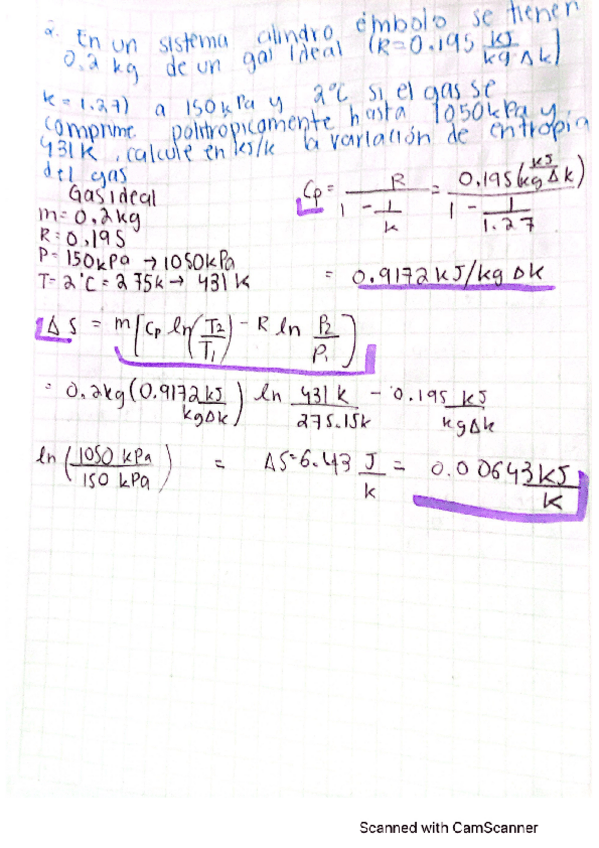 2. En un sistema cilindro émbolo se tienen
0.2 kg de un gas ideal (R=0.195 kJ/kg·Δk)
k=1.27) a 150kPa y 2°C si el gas se
comprime politropicamente hasta 1050kPa y
431k. calcule en kJ/k la variación de entropia
del gas
Gas ideal
m=0,2kg
R=0,195
P=150kPa → 1050kPa
T=2°C=275k → 431k
Cp = R / (1 - 1/k) = 0.195(kJ/kgΔk) / (1 - 1/1.27)
= 0.9172kJ/kg Δk
ΔS = m[Cp ln(T2/T1) - R ln P2/P1]
= 0.2kg(0.9172kJ/kgΔk) ln 431k/275.15k - 0.195 kJ/kgΔk
ln(1050 kPa/150 kPa) = ΔS=6.43 J/k = 0.00643kJ/k
Scanned with CamScanner